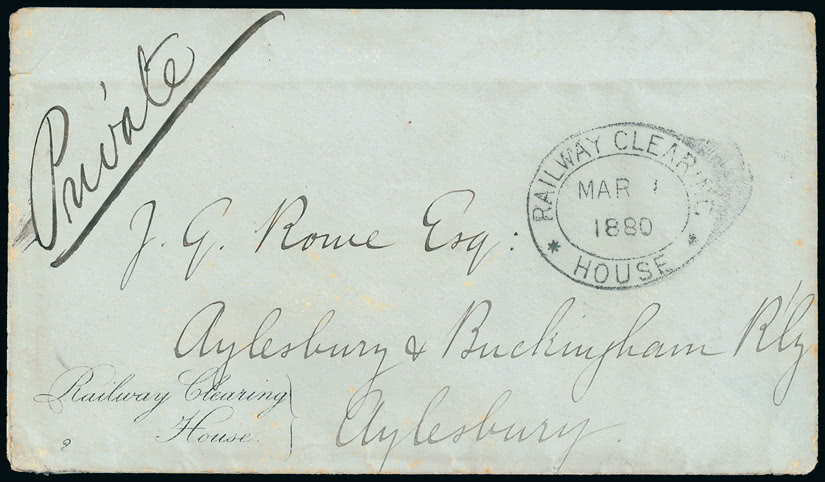 Private
RAILWAY CLEARING
MAR 1
1880
* HOUSE *
J. G. Rowe Esq:
Aylesbury & Buckingham R'ly
Aylesbury.
Railway Clearing
House.
2